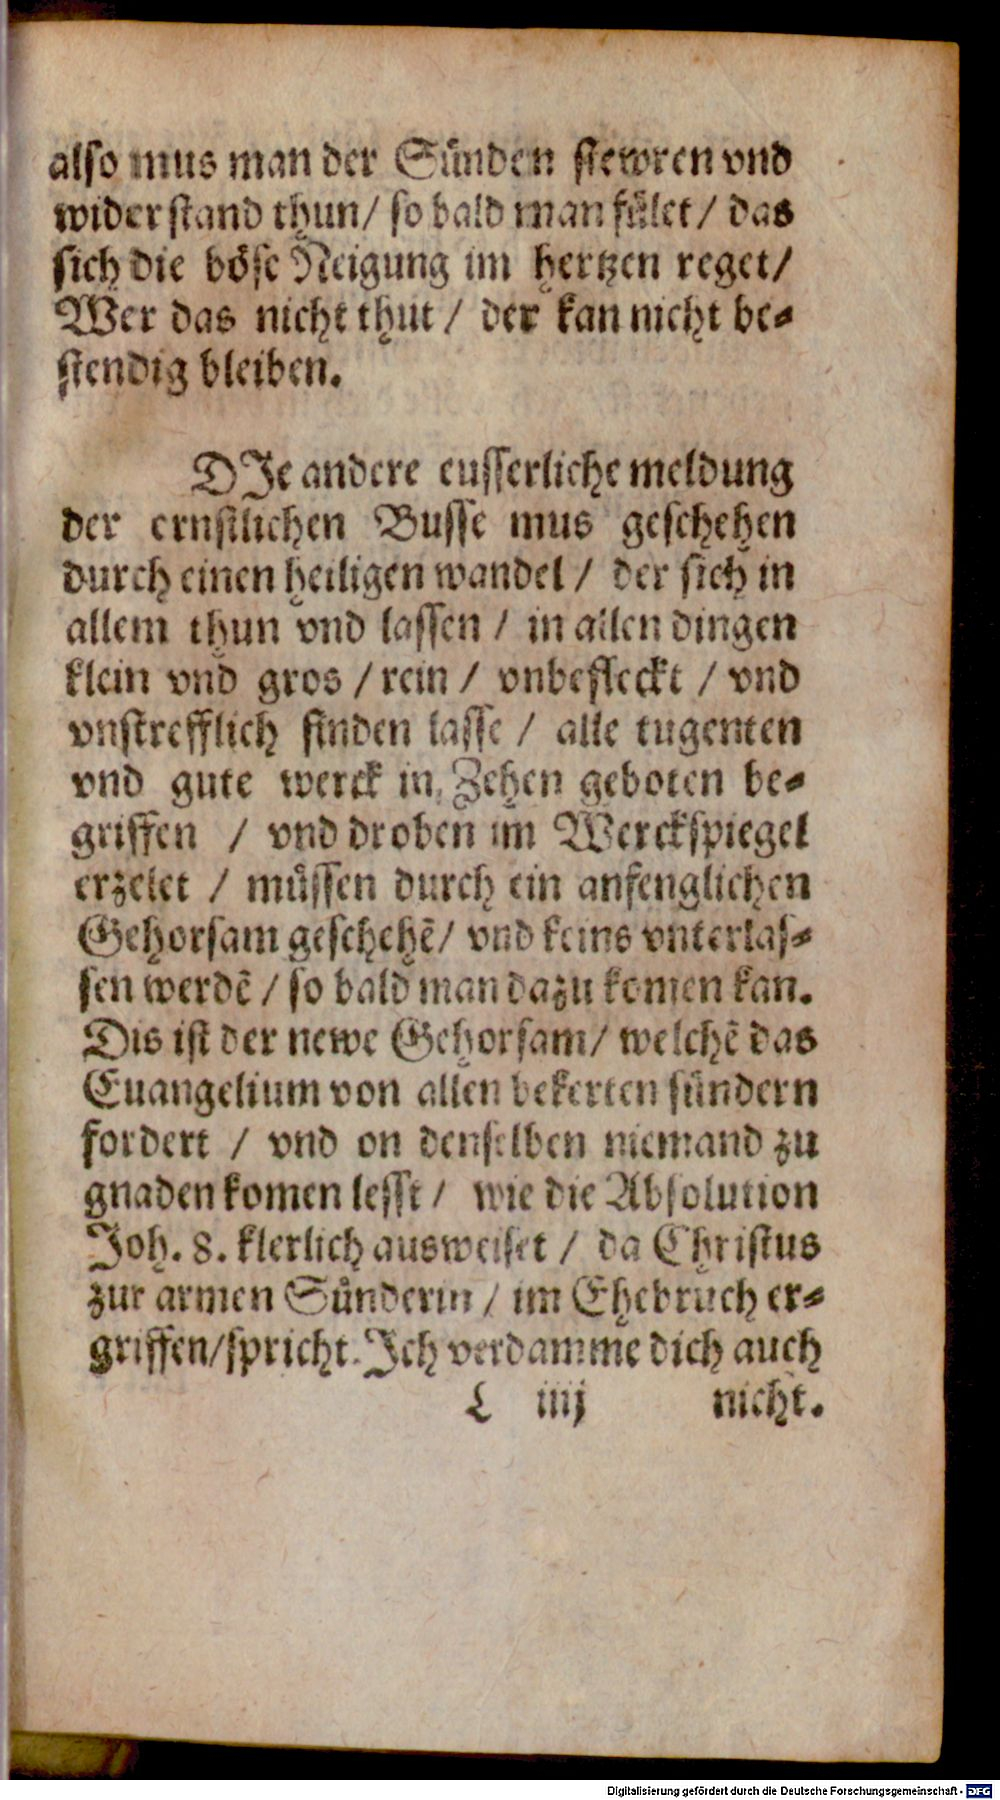 also mus man der Sünden stewren vnd
widerstand thun/ so bald man fület/ das
sich die böse Neigung im hertzen reget/
Wer das nicht thut / der kan nicht be-
stendig bleiben.
DIe andere eusserliche meldung
der ernstlichen Busse mus geschehen
durch einen heiligen wandel / der sich in
allem thun vnd lassen / in allen dingen
klein vnd gros / rein / vnbefleckt / vnd
vnstrefflich finden lasse / alle tugenten
vnd gute werck in Zehen geboten be-
griffen / vnd droben im Werckspiegel
erzelet / müssen durch ein anfenglichen
Gehorsam geschehē/ vnd keins vnterlas-
sen werdē / so bald man dazu komen kan.
Dis ist der newe Gehorsam/ welchē das
Euangelium von allen bekerten sündern
fordert / vnd on denselben niemand zu
gnaden komen lesst / wie die Absolution
Joh. 8. klerlich ausweiset / da Christus
zur armen Sünderin / im Ehebruch er-
griffen/spricht. Ich verdamme dich auch
L iiij nicht.
Digitalisierung gefördert durch die Deutsche Forschungsgemeinschaft - DFG